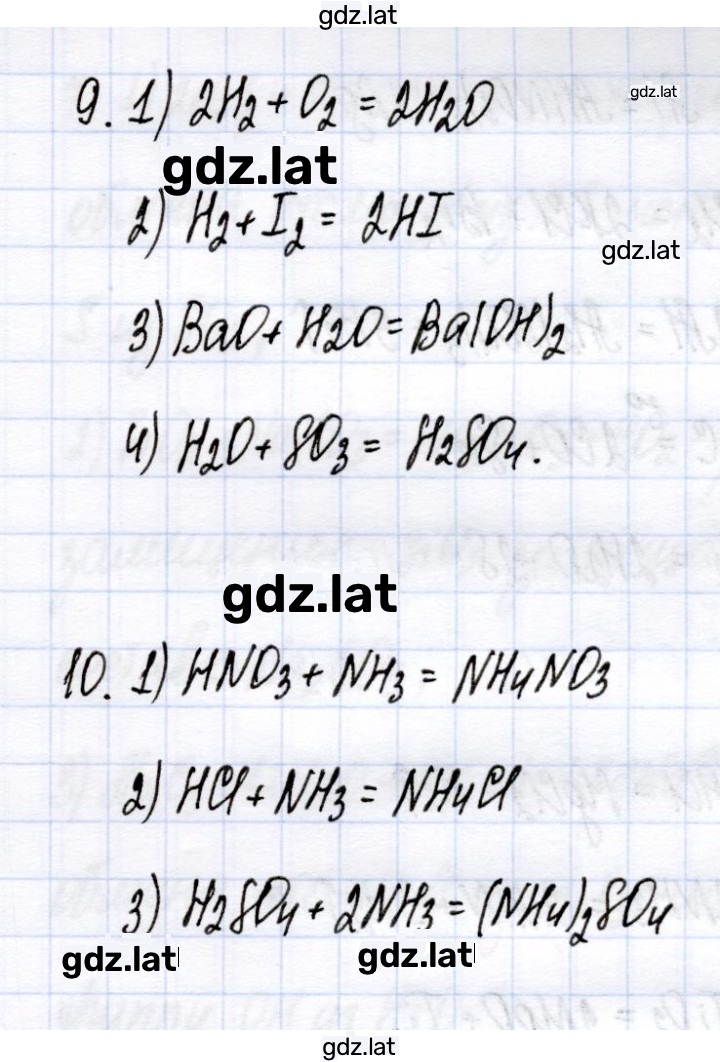 gdz.lat
9. 1) 2H₂ + O₂ = 2H₂O
gdz.lat
gdz.lat
2) H₂ + I₂ = 2HI
gdz.lat
3) BaO + H₂O = Ba(OH)₂
4) H₂O + SO₃ = H₂SO₄.
gdz.lat
10. 1) HNO₃ + NH₃ = NH₄NO₃
2) HCl + NH₃ = NH₄Cl
3) H₂SO₄ + 2NH₃ = (NH₄)₂SO₄
gdz.lat gdz.lat
gdz.lat